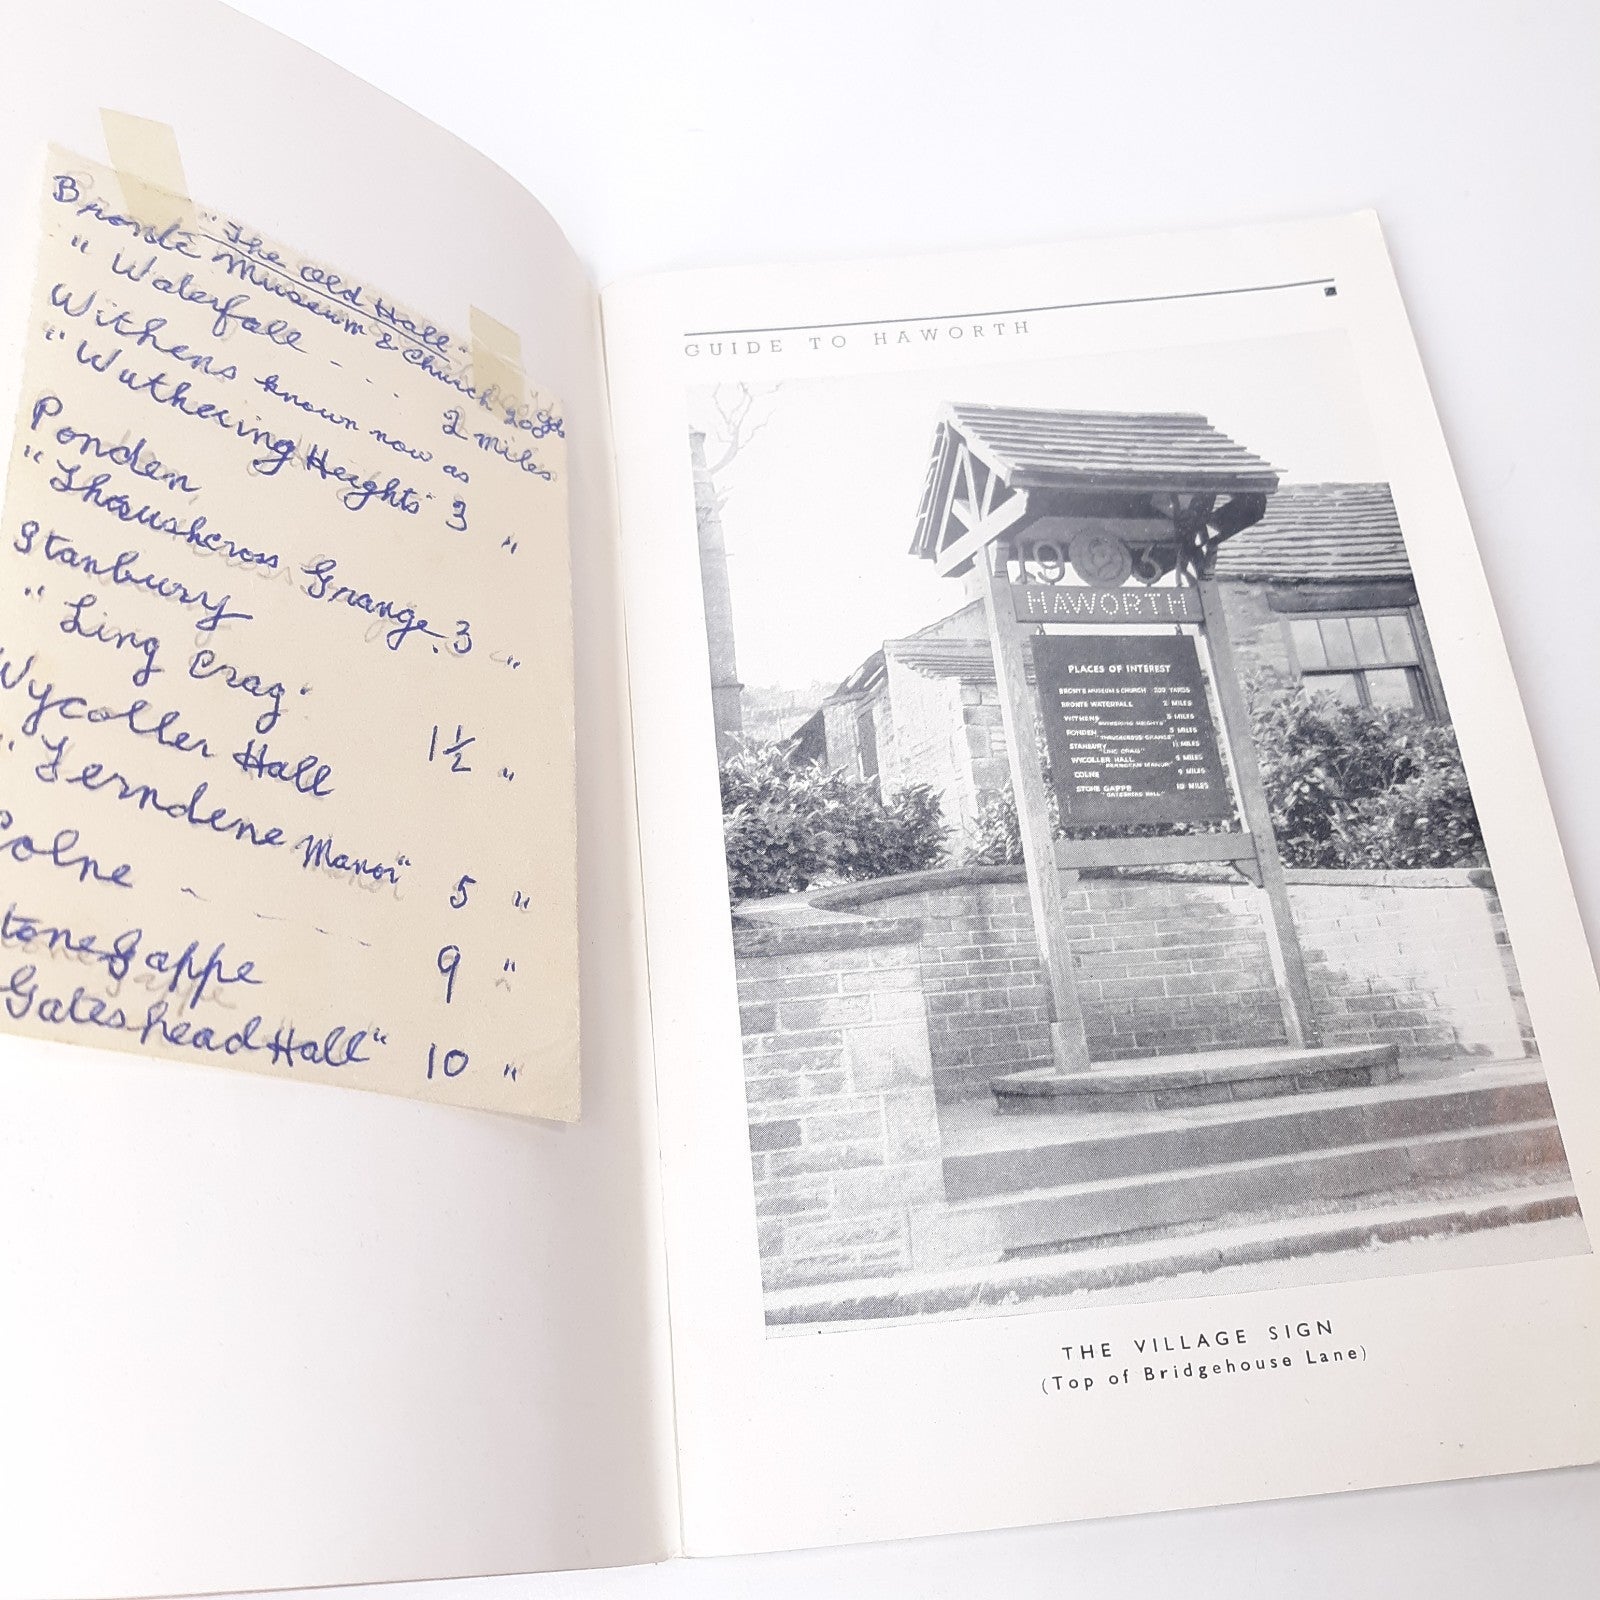 "The Old Hall"
Brontë Museum & Church 200 yds
" Waterfall - - - 2 miles
Withens known now as
"Wuthering Heights" 3 "
Ponden
"Thrushcross Grange. 3 "
Stanbury
" Ling Crag. 1½ "
Wycoller Hall
" Ferndene Manor" 5 "
Colne - - - - 9 "
Stone Gappe
Gateshead Hall" 10 "
GUIDE TO HAWORTH
1931
HAWORTH
PLACES OF INTEREST
BRONTE MUSEUM & CHURCH 200 YARDS
BRONTE WATERFALL 2 MILES
WITHENS "WUTHERING HEIGHTS" 3 MILES
PONDEN "THRUSHCROSS GRANGE" 3 MILES
STANBURY "LING CRAG" 1½ MILES
WYCOLLER HALL MANOR" MILES
COLNE 9 MILES
STONE GAPPE "GATESHEAD HALL" 10 MILES
THE VILLAGE SIGN
(Top of Bridgehouse Lane)